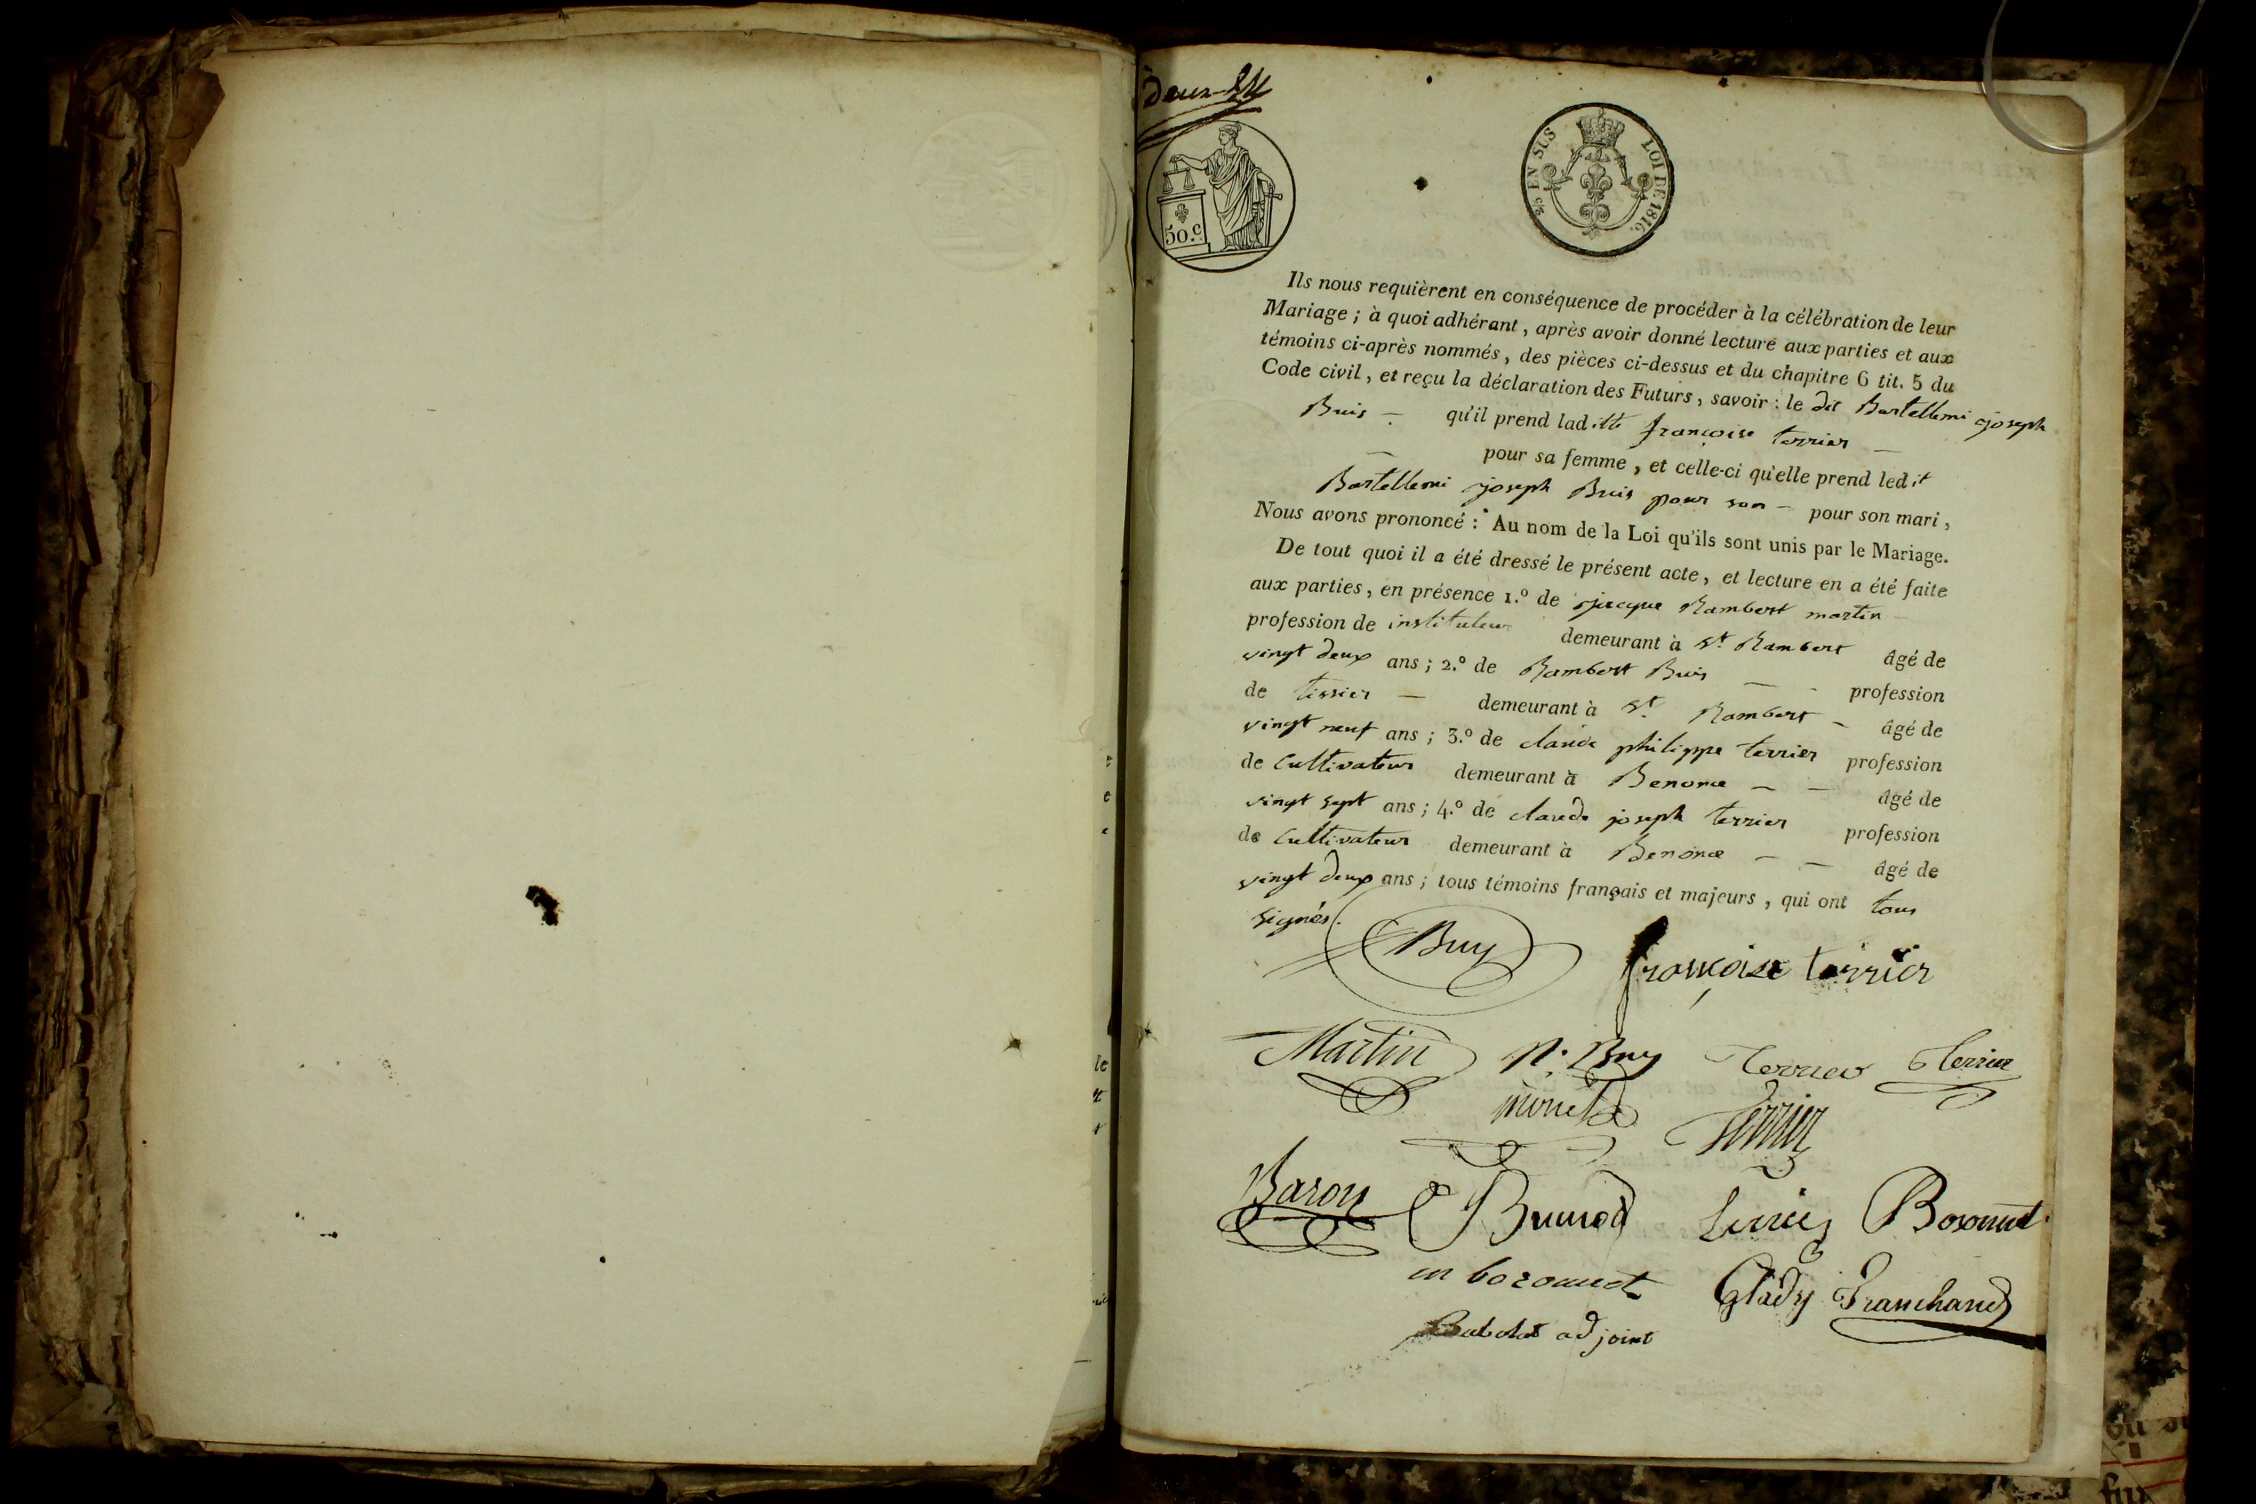 deux
50.c
2/5 EN SUS LOI DE 1816.
Ils nous requièrent en conséquence de procéder à la célébration de leur
Mariage ; à quoi adhérant, après avoir donné lecture aux parties et aux
témoins ci-après nommés, des pièces ci-dessus et du chapitre 6 tit. 5 du
Code civil, et reçu la déclaration des Futurs, savoir : le dit Bartellemi joseph
Buis - qu'il prend laditte françoise terrier -
- pour sa femme, et celle-ci qu'elle prend ledit
Bartellemi joseph Buis pour son - pour son mari,
Nous avons prononcé : Au nom de la Loi qu'ils sont unis par le Mariage.
De tout quoi il a été dressé le présent acte, et lecture en a été faite
aux parties, en présence 1.º de jacque Rambert martin -
profession de instituteur demeurant à St. Rambert âgé de
vingt deux ans ; 2.º de Rambert Buis - - profession
de tissier - demeurant à St. Rambert - âgé de
vingt neuf ans ; 3.º de claude philippe terrier profession
de cultivateur demeurant à Benonce - - âgé de
vingt sept ans ; 4.º de claude joseph terrier profession
de cultivateur demeurant à Benonce - - âgé de
vingt deux ans ; tous témoins français et majeurs, qui ont tous
signés.
Buy françoise terrier
Martin R. Buy Terrier Terrier
Terrier
Baron Brunod terrier
Glady Tranchand
Babolat adjoint